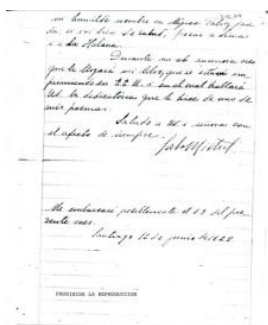 mi humilde nombre en algun
de salud, pasar a
a la Habana.
Durante mi ausencia
que le llegará mi libro, que se está im
primiendo en EE. UU. i en el cual hallará
Ud. la dedicatoria que le hice de uno de
mis poemas.
Saludo a Ud. i señora con
el afecto de siempre.
Gab. Mistral
Me embarcaré posiblemente el 23 del pre
sente mes.
Santiago 12 de junio de 1922
PROHIBIDA LA REPRODUCCION